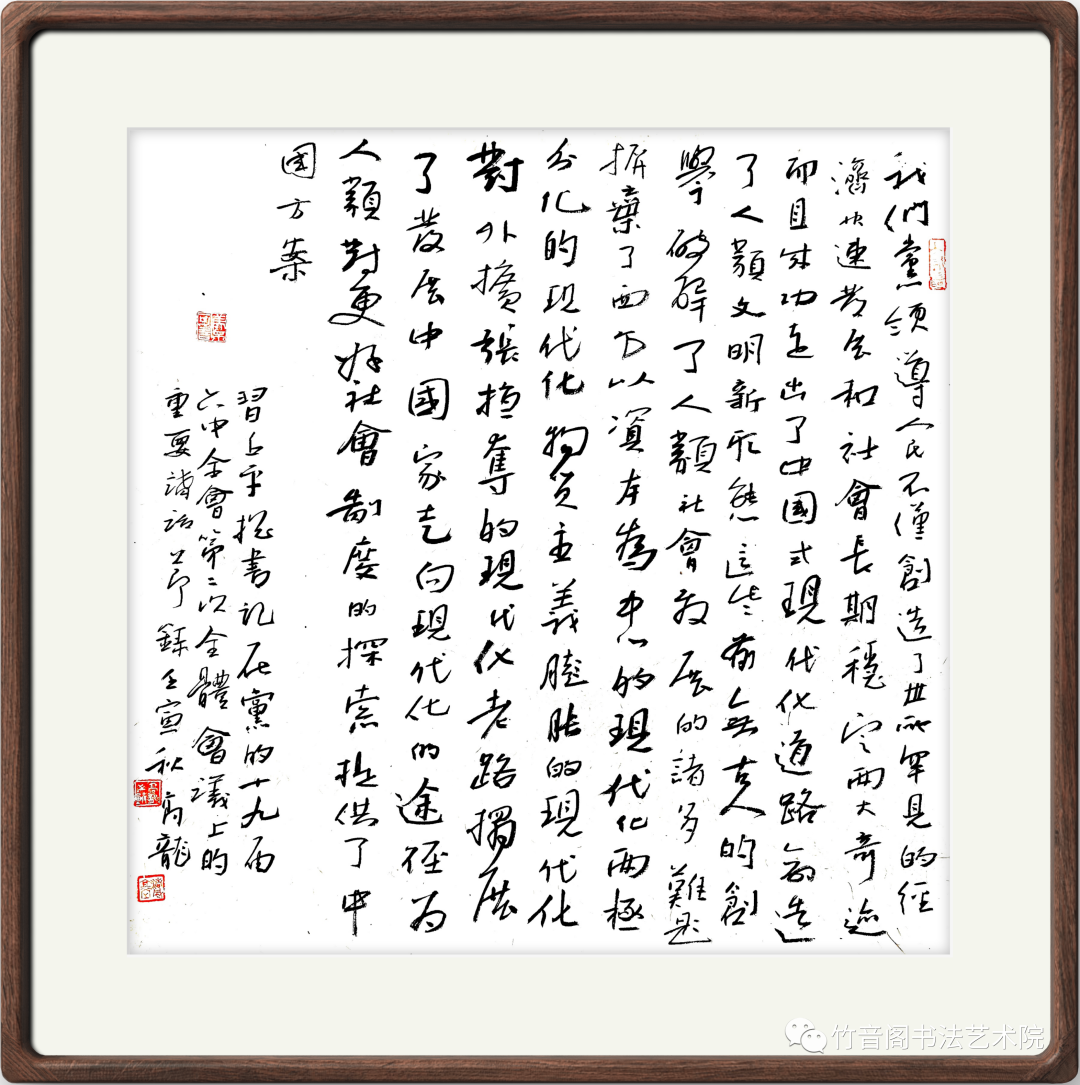 我們黨領導人民不僅創造了世所罕見的經
濟快速發展和社會長期穩定兩大奇迹
而且成功走出了中國式現代化道路創造
了人類文明新形態這些前無古人的創
舉破解了人類社會發展的諸多難題
摒棄了西方以資本為中心的現代化兩極
分化的現代化物質主義膨脹的現代化
對外擴張掠奪的現代化老路搨展
了發展中國家走向現代化的途徑为
人類對更好社會制度的探索提供了中
國方案
習近平總書記在黨的十九届
六中全會第二次全體會議上的
重要講話節錄壬寅秋龍
竹音阁书法艺术院